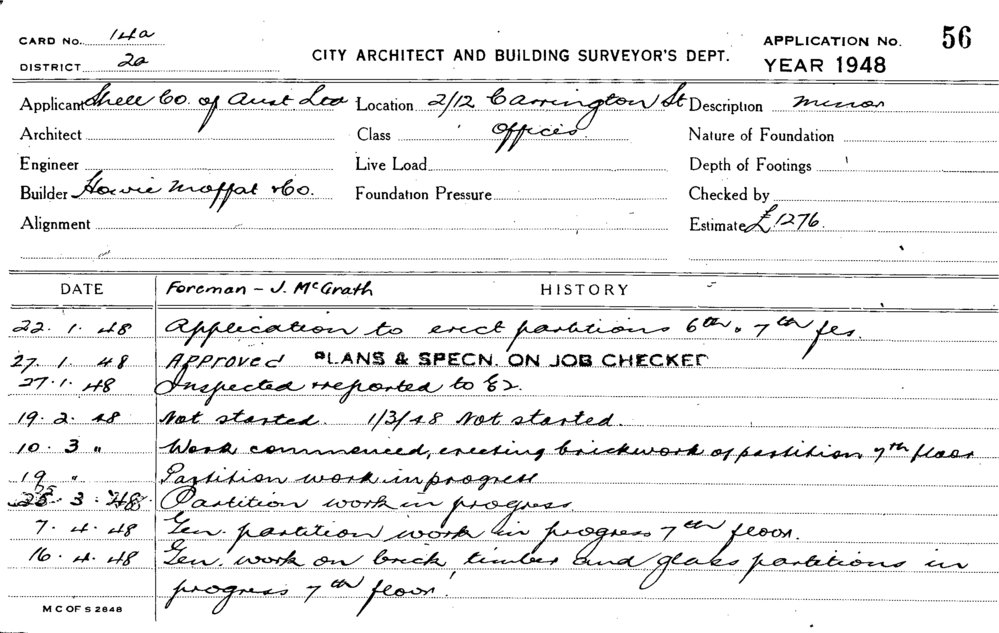 CARD No. 14a
DISTRICT 2a
CITY ARCHITECT AND BUILDING SURVEYOR'S DEPT.
APPLICATION No. 56
YEAR 1948
Applicant Shell Co. of Aust Ltd Location 2/12 Carrington St Description minor
Architect Class Offices Nature of Foundation
Engineer Live Load Depth of Footings
Builder Howie Moffat & Co. Foundation Pressure Checked by
Alignment Estimate £1276.
DATE Foreman - J. McGrath HISTORY
22. 1. 48 Application to erect partitions 6th & 7th fls.
27. 1. 48 APPROVED PLANS & SPECN. ON JOB CHECKED
27. 1. 48 Inspected & reported to
19. 2. 48 Not started. 1/3/48 Not started.
10. 3 " Work commenced, erecting brickwork of partition 7th floor
19 " Partition work in progress
3. 48. Partition work in progress.
7. 4. 48 Gen. partition work in progress 7th floor.
16. 4. 48 Gen. work on brick, timber and glass partitions in
progress 7th floor.
M C OF S 2648